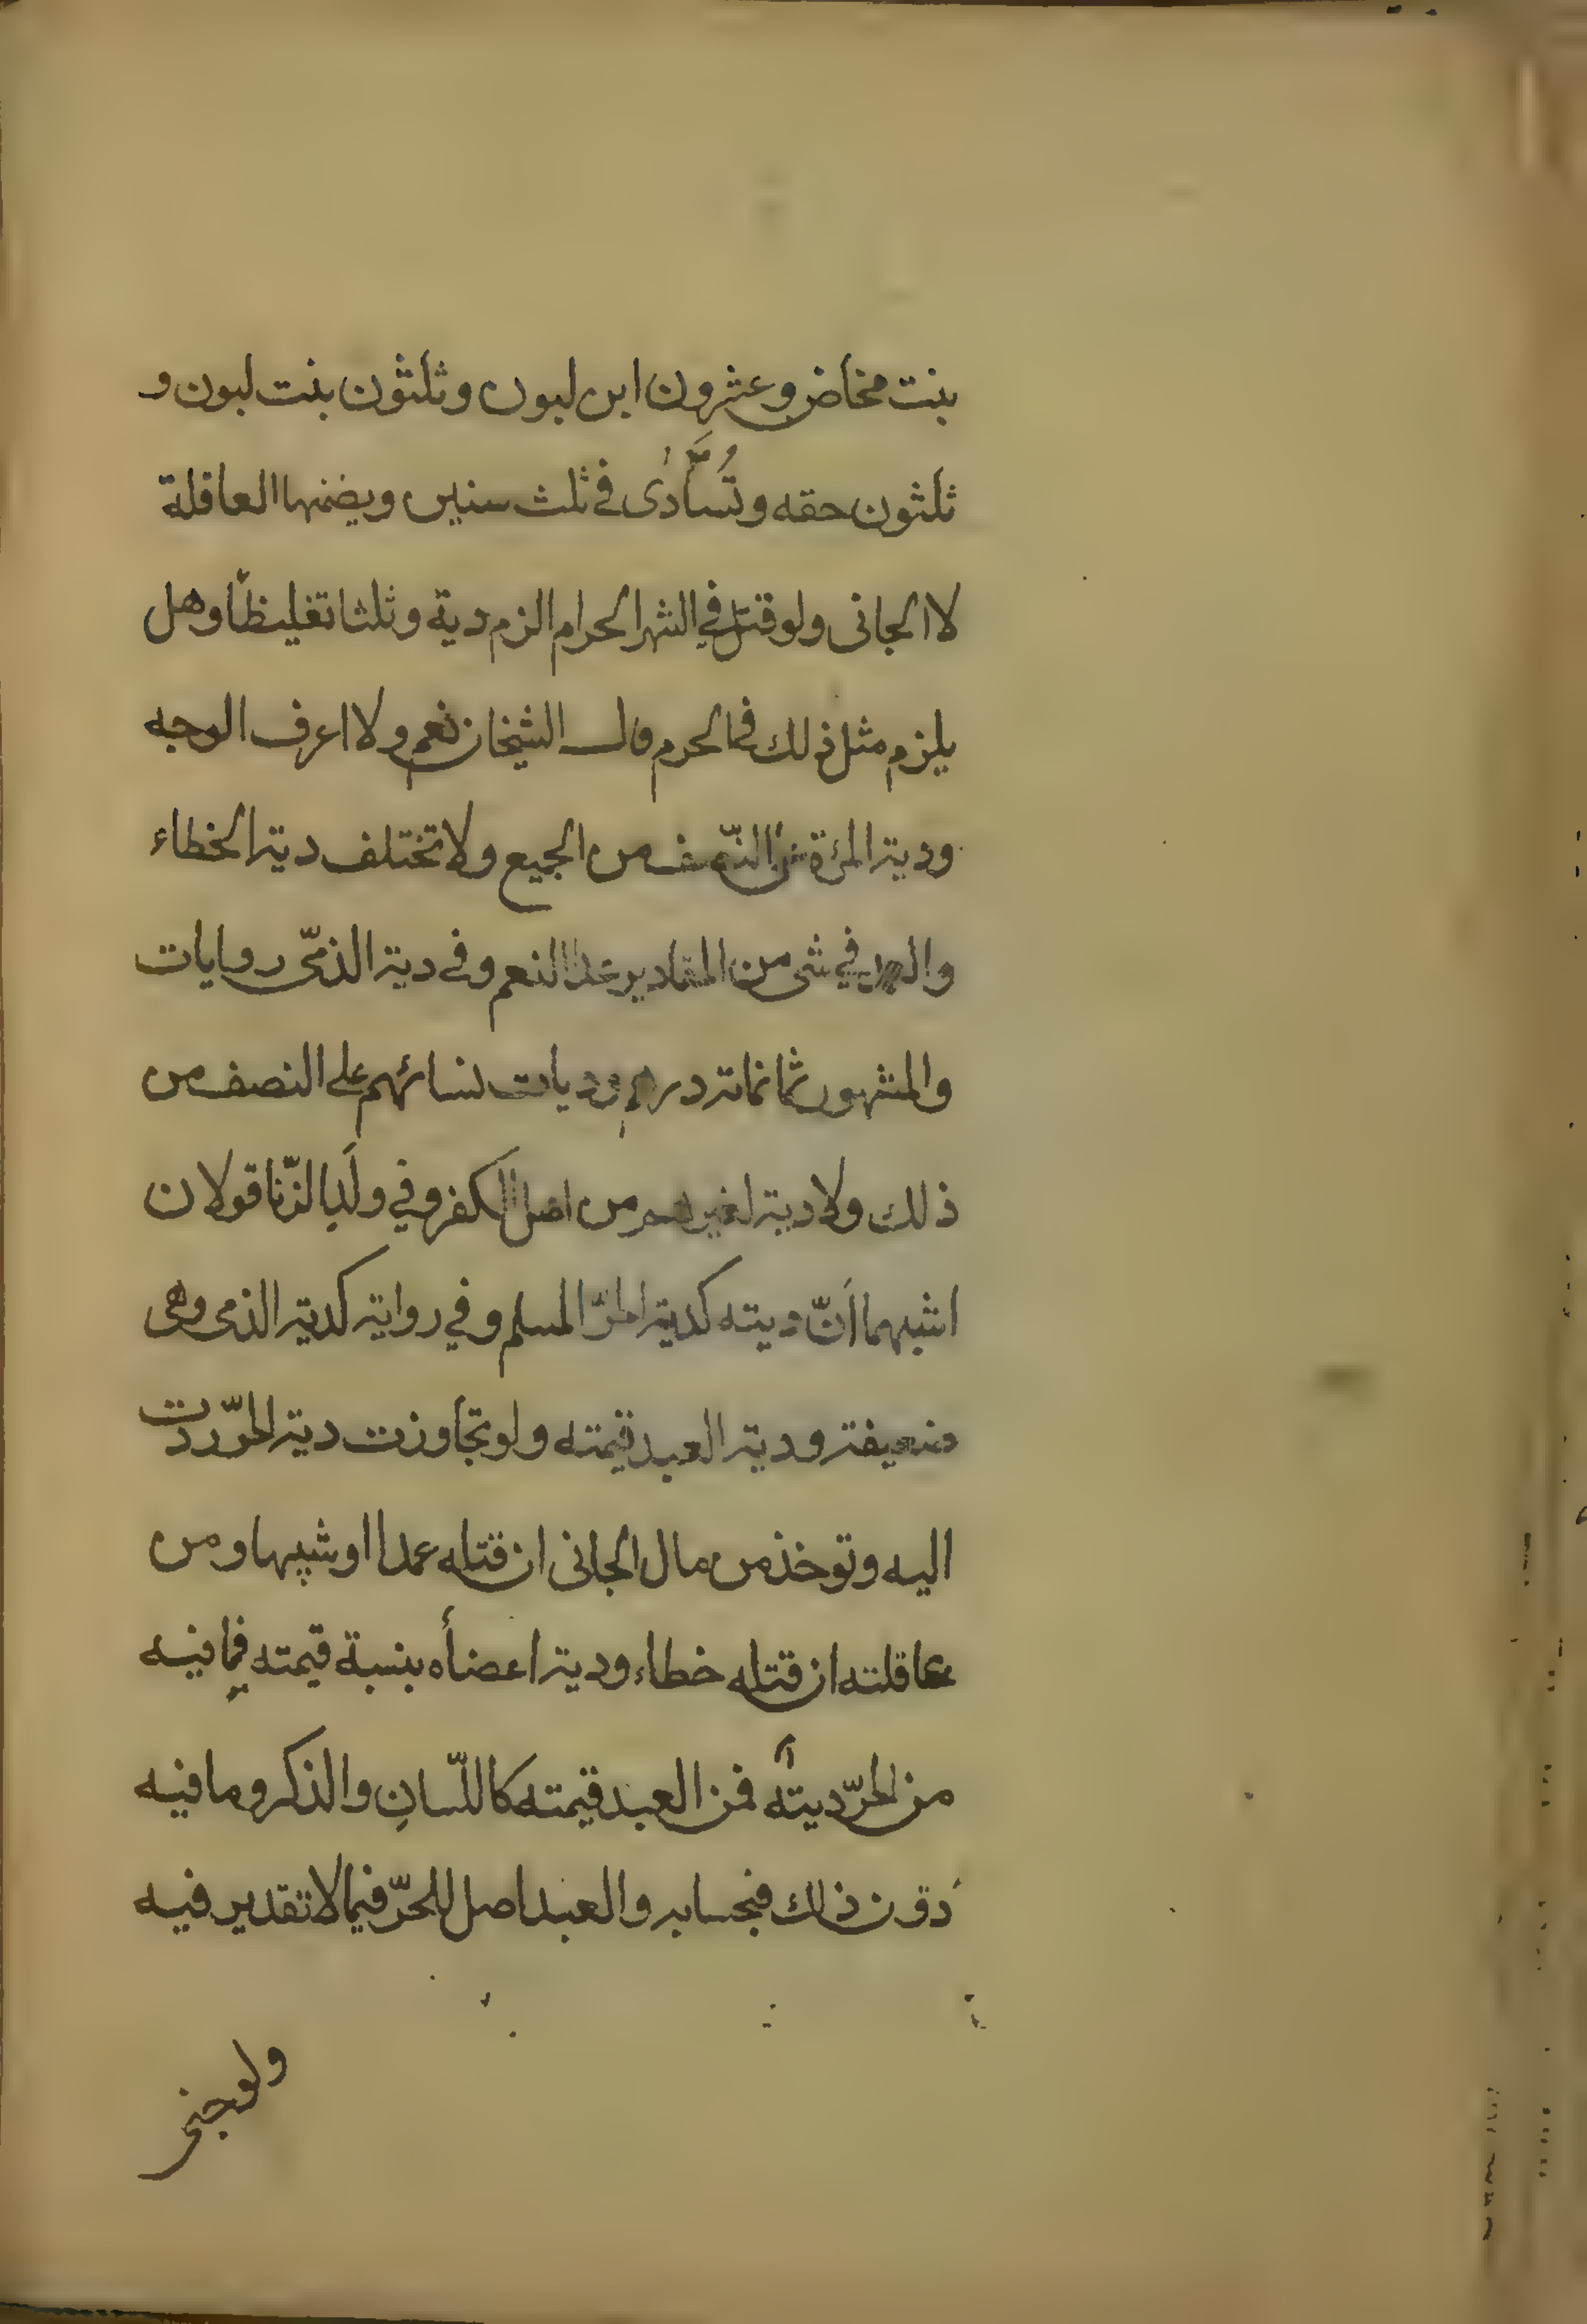 بنت مخاض وعشرون ابن لبون وثلثون بنت لبون و
ثلثون حقه وتستأدى في ثلث سنين ويضمنها العاقلة
لا الجانى ولو قتل في الشهر الحرام الزم دية وثلثا تغليظا وهل
يلزم مثل ذلك في الحرم قال الشيخان نعم ولا اعرف الوجه
ودية المرئة النصف من الجميع ولا تختلف دية الخطاء
والعمد في شى من المقادير عدا النعم وفي دية الذمّى روايات
والمشهور ثمانمائة درهم وديات نسائهم على النصف من
ذلك ولا دية لغيرهم من اهل الكفر وفي ولد الزّنا قولان
اشبههما أنّ ديته كدية الحرّ المسلم وفي رواية كدية الذمى وهى
ضعيفة ودية العبد قيمته ولو تجاوزت دية الحرّ ردت
اليه وتوخذ من مال الجانى ان قتله عمدا او شبيها ومن
عاقلته ان قتله خطاء ودية اعضأه بنسبة قيمته فما فيه
من الحرّ ديته فمن العبد قيمته كاللّسانِ والذكر وما فيه
دون ذلك فبحسابه والعبد اصل للحرّ فيما لا تقدير فيه
ولو جنى